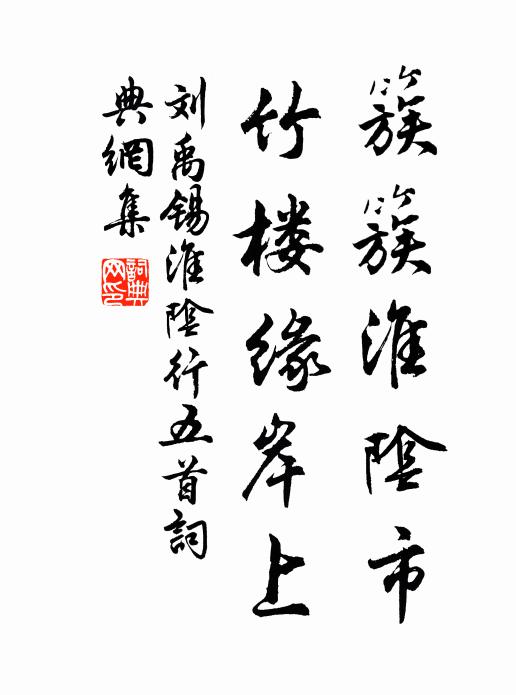 簇簇淮陰市
竹楼緣岸上
刘禹锡淮陰行五首詞
典網集
詞典网印